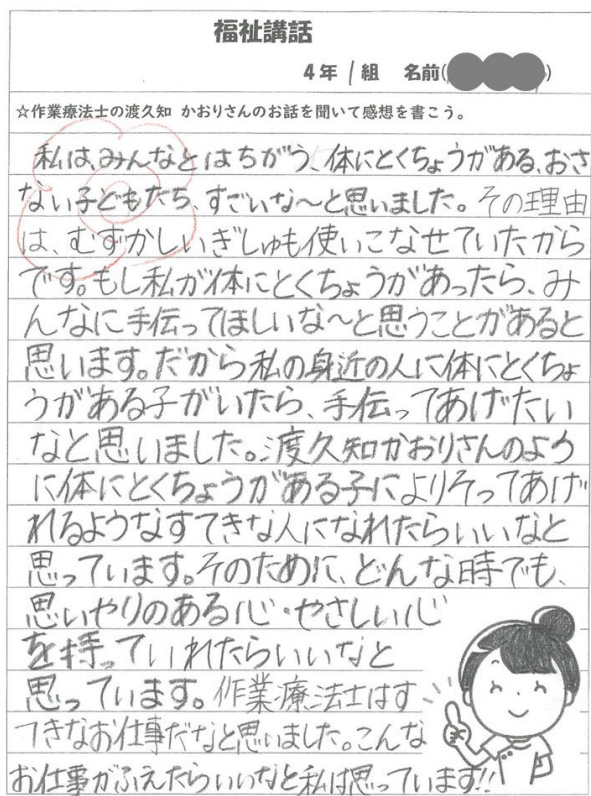 福祉講話
4年 1組 名前( )
☆作業療法士の渡久知 かおりさんのお話を聞いて感想を書こう。
私は、みんなとはちがう、体にとくちょうがある、おさ
ない子どもたち、すごいな〜と思いました。その理由
は、むずかしいぎしゅも使いこなせていたから
です。もし私が体にとくちょうがあったら、み
んなに手伝ってほしいな〜と思うことがあると
思います。だから私の身近の人に体にとくちょ
うがある子がいたら、手伝ってあげたい
なと思いました。渡久知かおりさんのよう
に体にとくちょうがある子によりそってあげ
れるようなすてきな人になれたらいいなと
思っています。そのために、どんな時でも、
思いやりのある心・やさしい心
を持っていれたらいいなと
思っています。作業療法士はす
てきなお仕事だなと思いました。こんな
お仕事がふえたらいいなと私は思っています!!